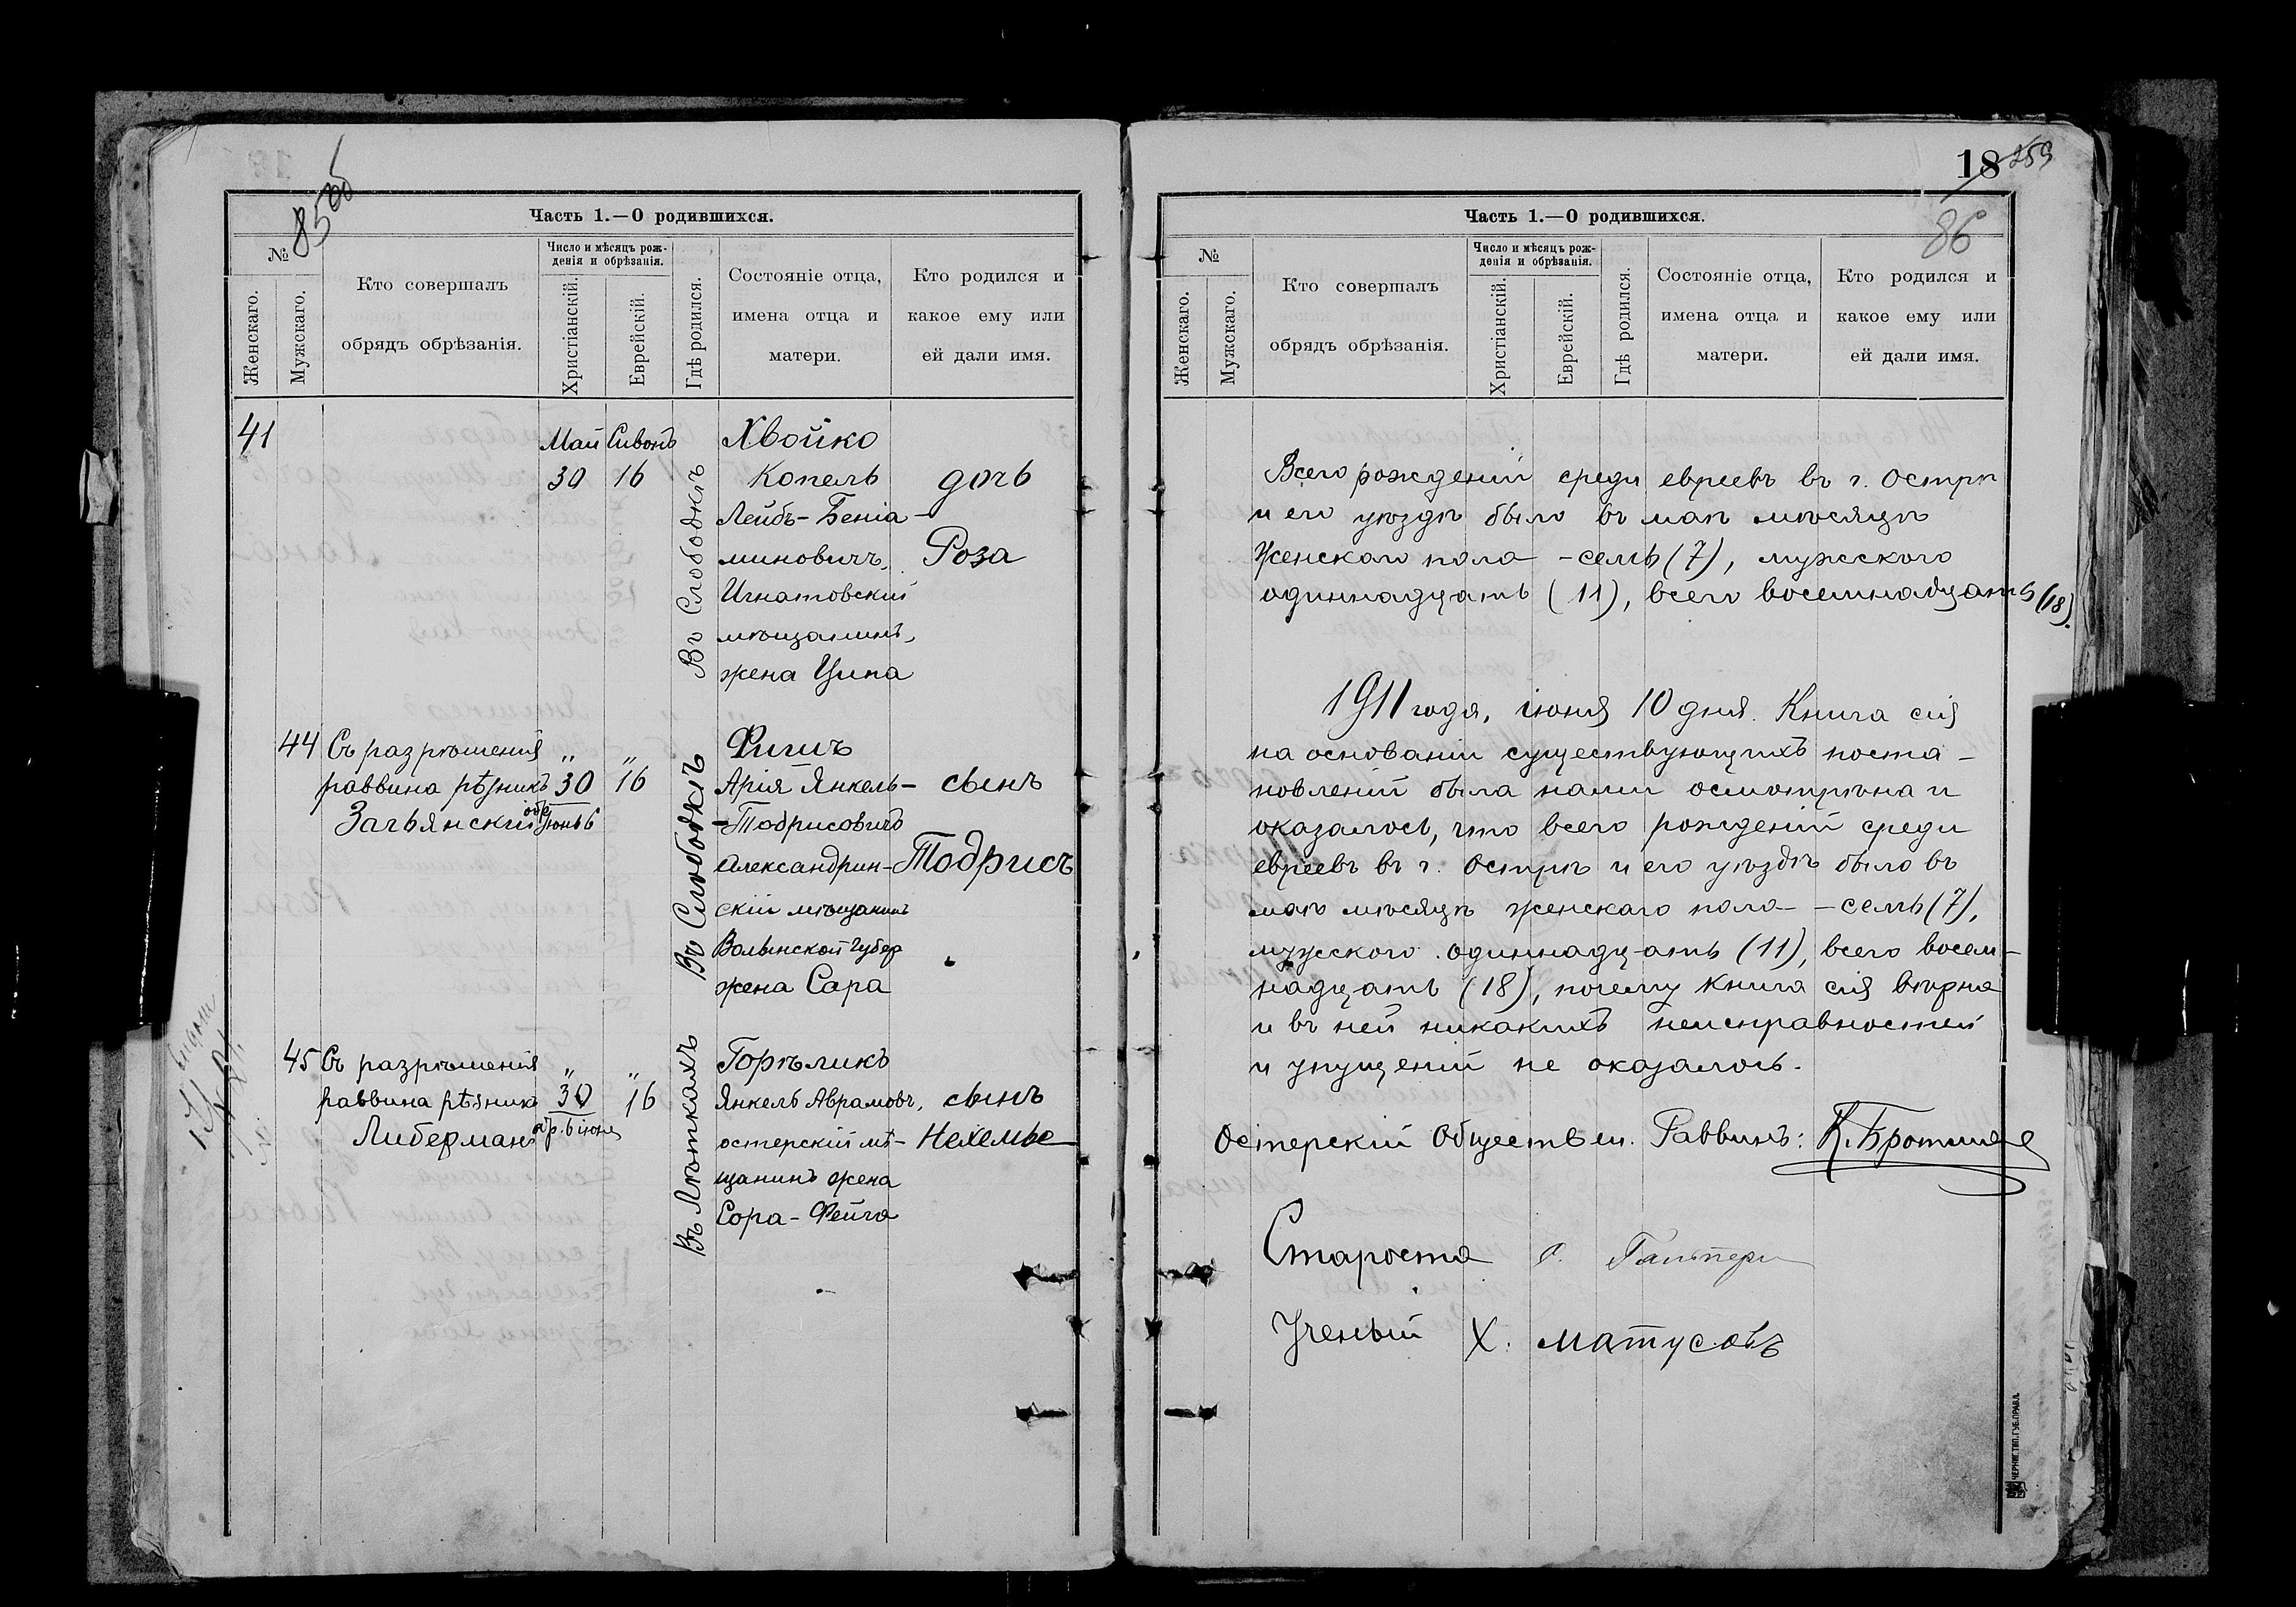 85 об
Часть 1.—О родившихся.
№
Женскаго.
Мужскаго.
Кто совершалъ
обрядъ обрѣзанія.
Число и мѣсяцъ рож-
денія и обрѣзанія.
Христіанскій.
Еврейскій.
Гдѣ родился.
Состояніе отца,
имена отца и
матери.
Кто родился и
какое ему или
ей дали имя.
41
Май Сивонъ
30 16
Въ Слободкѣ
Хвойко
Копель
Лейбъ-Беніа-
миновичъ,
Игнатовскій
мѣщанинъ,
жена Ципа
дочь
Роза
44 Съ разрѣшенія " "
раввина рѣзникъ 30 16
Зачьянскій обр. Іюнь 6
Въ Слободкѣ
Фишъ
Арія Янкель-
-Тодрисовичъ
Александрин-
скій мѣщанинъ
Волынской губер
жена Сара
сынъ
Тодрисъ
45 Съ разрѣшенія " "
раввина рѣзникъ 30 16
Либерманъ обр. 6 іюня
Въ Лѣткахъ
Горѣликъ
Янкель Аврамовъ,
остерскій мѣ-
щанинъ жена
Сора-Фейга
сынъ
Нехемье
18 259
86
Часть 1.—О родившихся.
№
Женскаго.
Мужскаго.
Кто совершалъ
обрядъ обрѣзанія.
Число и мѣсяцъ рож-
денія и обрѣзанія.
Христіанскій.
Еврейскій.
Гдѣ родился.
Состояніе отца,
имена отца и
матери.
Кто родился и
какое ему или
ей дали имя.
Всего рожденій среди евреевъ въ г. Острѣ
и его уѣздѣ было въ маѣ мѣсяцѣ
женскаго пола - семь (7), мужского
одиннадцать (11), всего восемнадцать (18).
1911 года, іюня 10 дня. Книга сія
на основаніи существующихъ поста-
новленій была нами осмотрѣна и
оказалось, что всего рожденій среди
евреевъ въ г. Острѣ и его уѣздѣ было въ
маѣ мѣсяцѣ женскаго пола - семь (7),
мужского одиннадцать (11), всего восем-
надцать (18), почему книга сія вѣрна
и въ ней никакихъ неисправностей
и упущеній не оказалось.
Остерскій Обществен. Раввинъ:
Староста
Ученый Х. Матусовъ
ЧЕРНИГ. ТИП. ГУБ. ПРАВЛ.